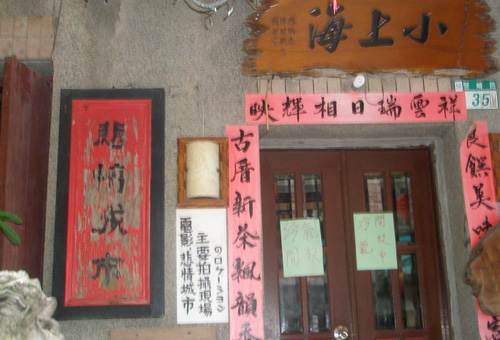 小上海
35
祥雲瑞日相輝映
良饌美味
古厝新茶飄韻香
悲情城市
電影:悲情城市
主要拍攝現場
のロケーション
開放中
冷氣